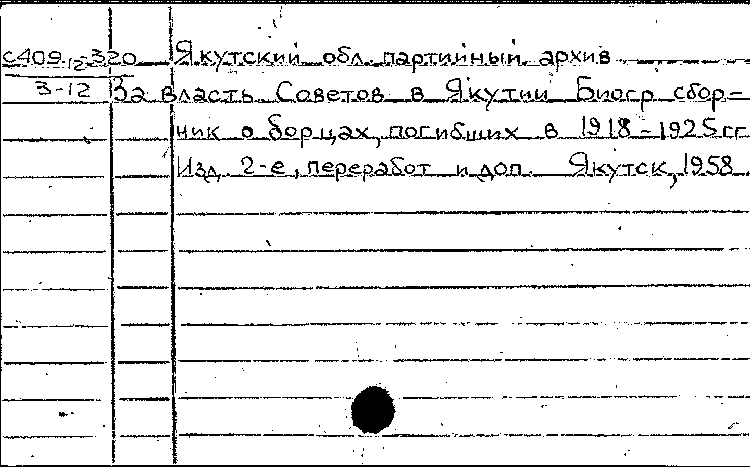 с409-12-320 Якутский обл. партийный архив
3-12 За власть Советов в Якутии Биогр сбор-
ник о борцах, погибших в 1918-1925гг
Изд. 2-е, переработ и доп. Якутск, 1958